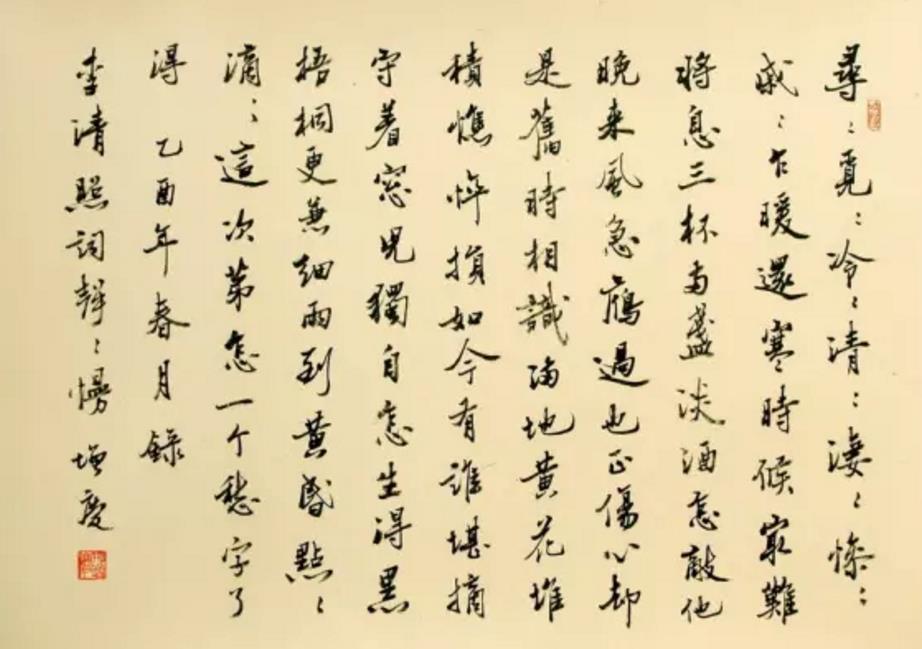 尋〻覓〻冷〻清〻淒〻慘〻
戚〻乍暖還寒時候最難
將息三杯兩盞淡酒怎敵他
晚来風急鴈過也正傷心却
是舊時相識滿地黄花堆
積憔悴損如今有誰堪摘
守着窓兒獨自怎生得黑
梧桐更兼細雨到黄昏點〻
滴〻這次第怎一个愁字了
得 乙酉年春月錄
李清照詞聲〻慢 增慶